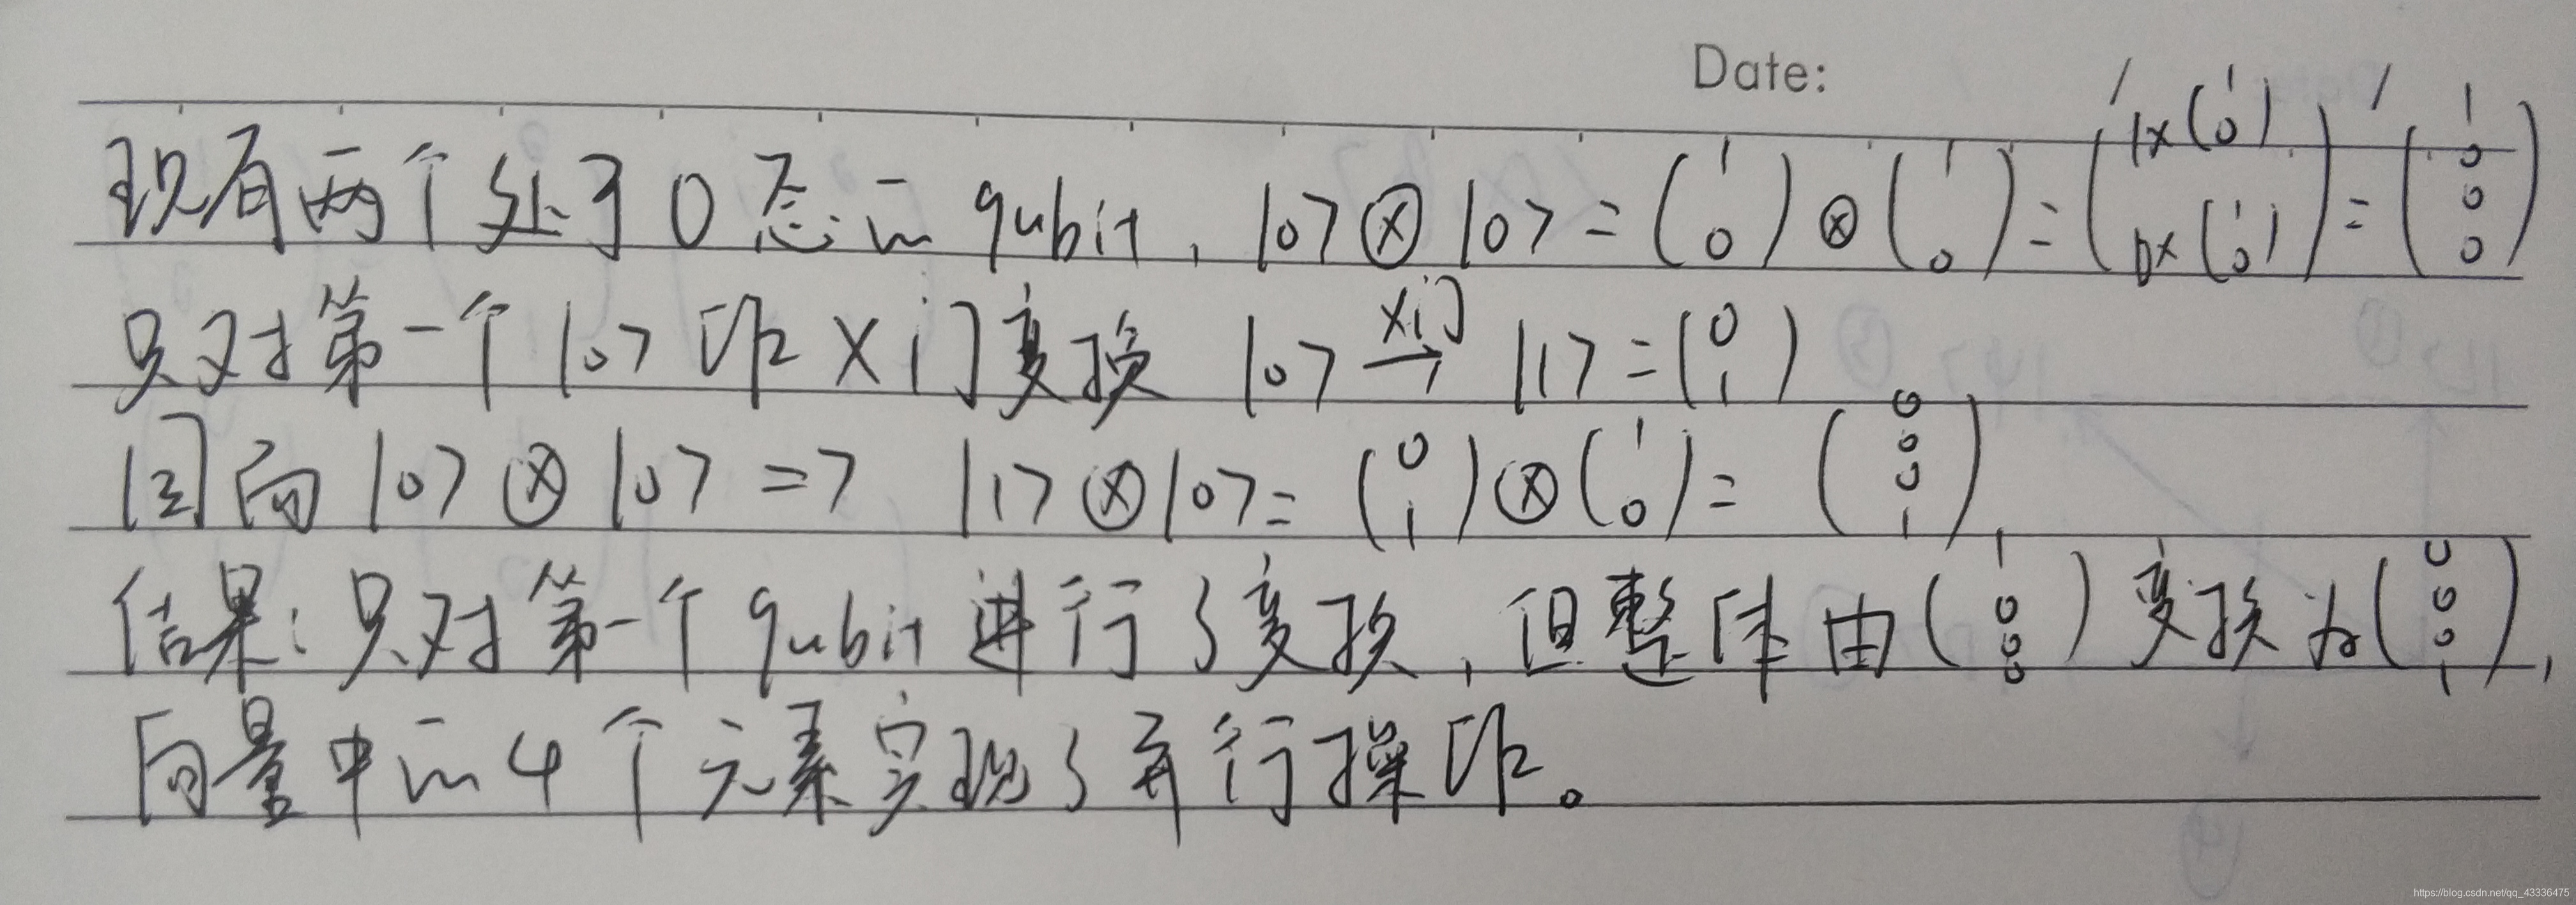 Date:
现有两个处于0态的qubit, |0>⊗|0> = (1 0)⊗(1 0) = (1×(1 0) 0×(1 0)) = (1 0 0 0)
只对第一个|0>作X门变换 |0> X门→ |1> = (0 1)
因而|0>⊗|0> => |1>⊗|0> = (0 1)⊗(1 0) = (0 0 0 1)
结果:只对第一个qubit进行了变换,但整体由(1 0 0 0)变换为(0 0 0 1),
向量中的4个元素实现了并行操作。
https://blog.csdn.net/qq_43336475